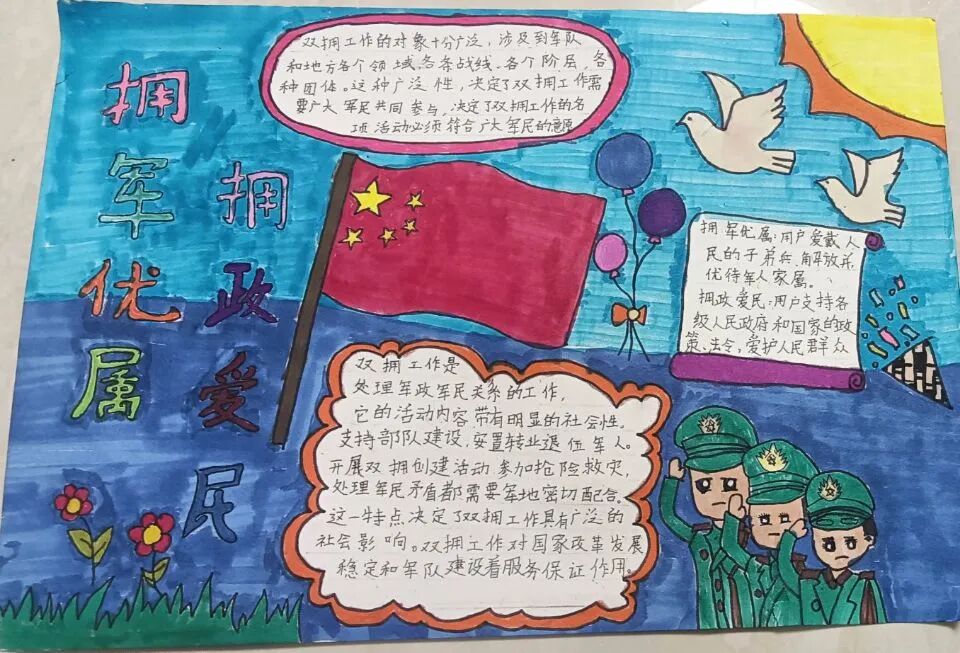 拥军优属
拥政爱民
双拥工作的对象十分广泛，涉及到军队
和地方各个领域、各条战线、各个阶层、各
种团体。这种广泛性，决定了双拥工作需
要广大军民共同参与，决定了双拥工作的各
项活动必须符合广大军民的意愿
拥军优属：用户爱戴人
民的子弟兵、解放并
优待军人家属。
拥政爱民：用户支持各
级人民政府和国家的政
策、法令，爱护人民群众
双拥工作是
处理军政军民关系的工作，
它的活动内容带有明显的社会性。
支持部队建设、安置转业退伍军人。
开展双拥创建活动参加抢险救灾，
处理军民矛盾都需要军地密切配合。
这一特点决定了双拥工作具有广泛的
社会影响。双拥工作对国家改革发展
稳定和军队建设着服务保证作用。